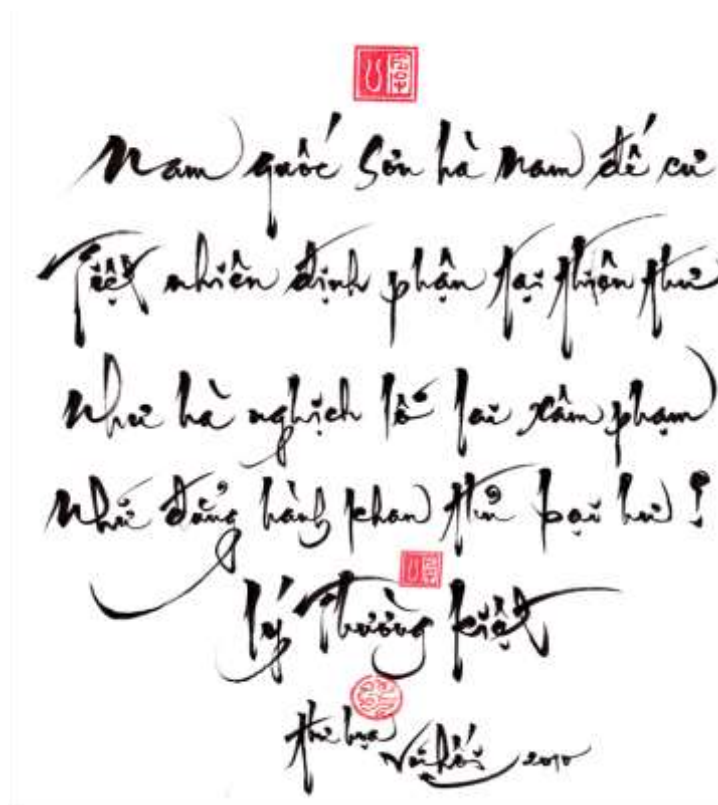 Nam quốc Sơn hà Nam đế cư
Tiệt nhiên định phận tại thiên thư
Như hà nghịch lỗ lai xâm phạm
Nhữ đẳng hành khan thủ bại hư !
Lý Thường Kiệt
Thư họa
2010